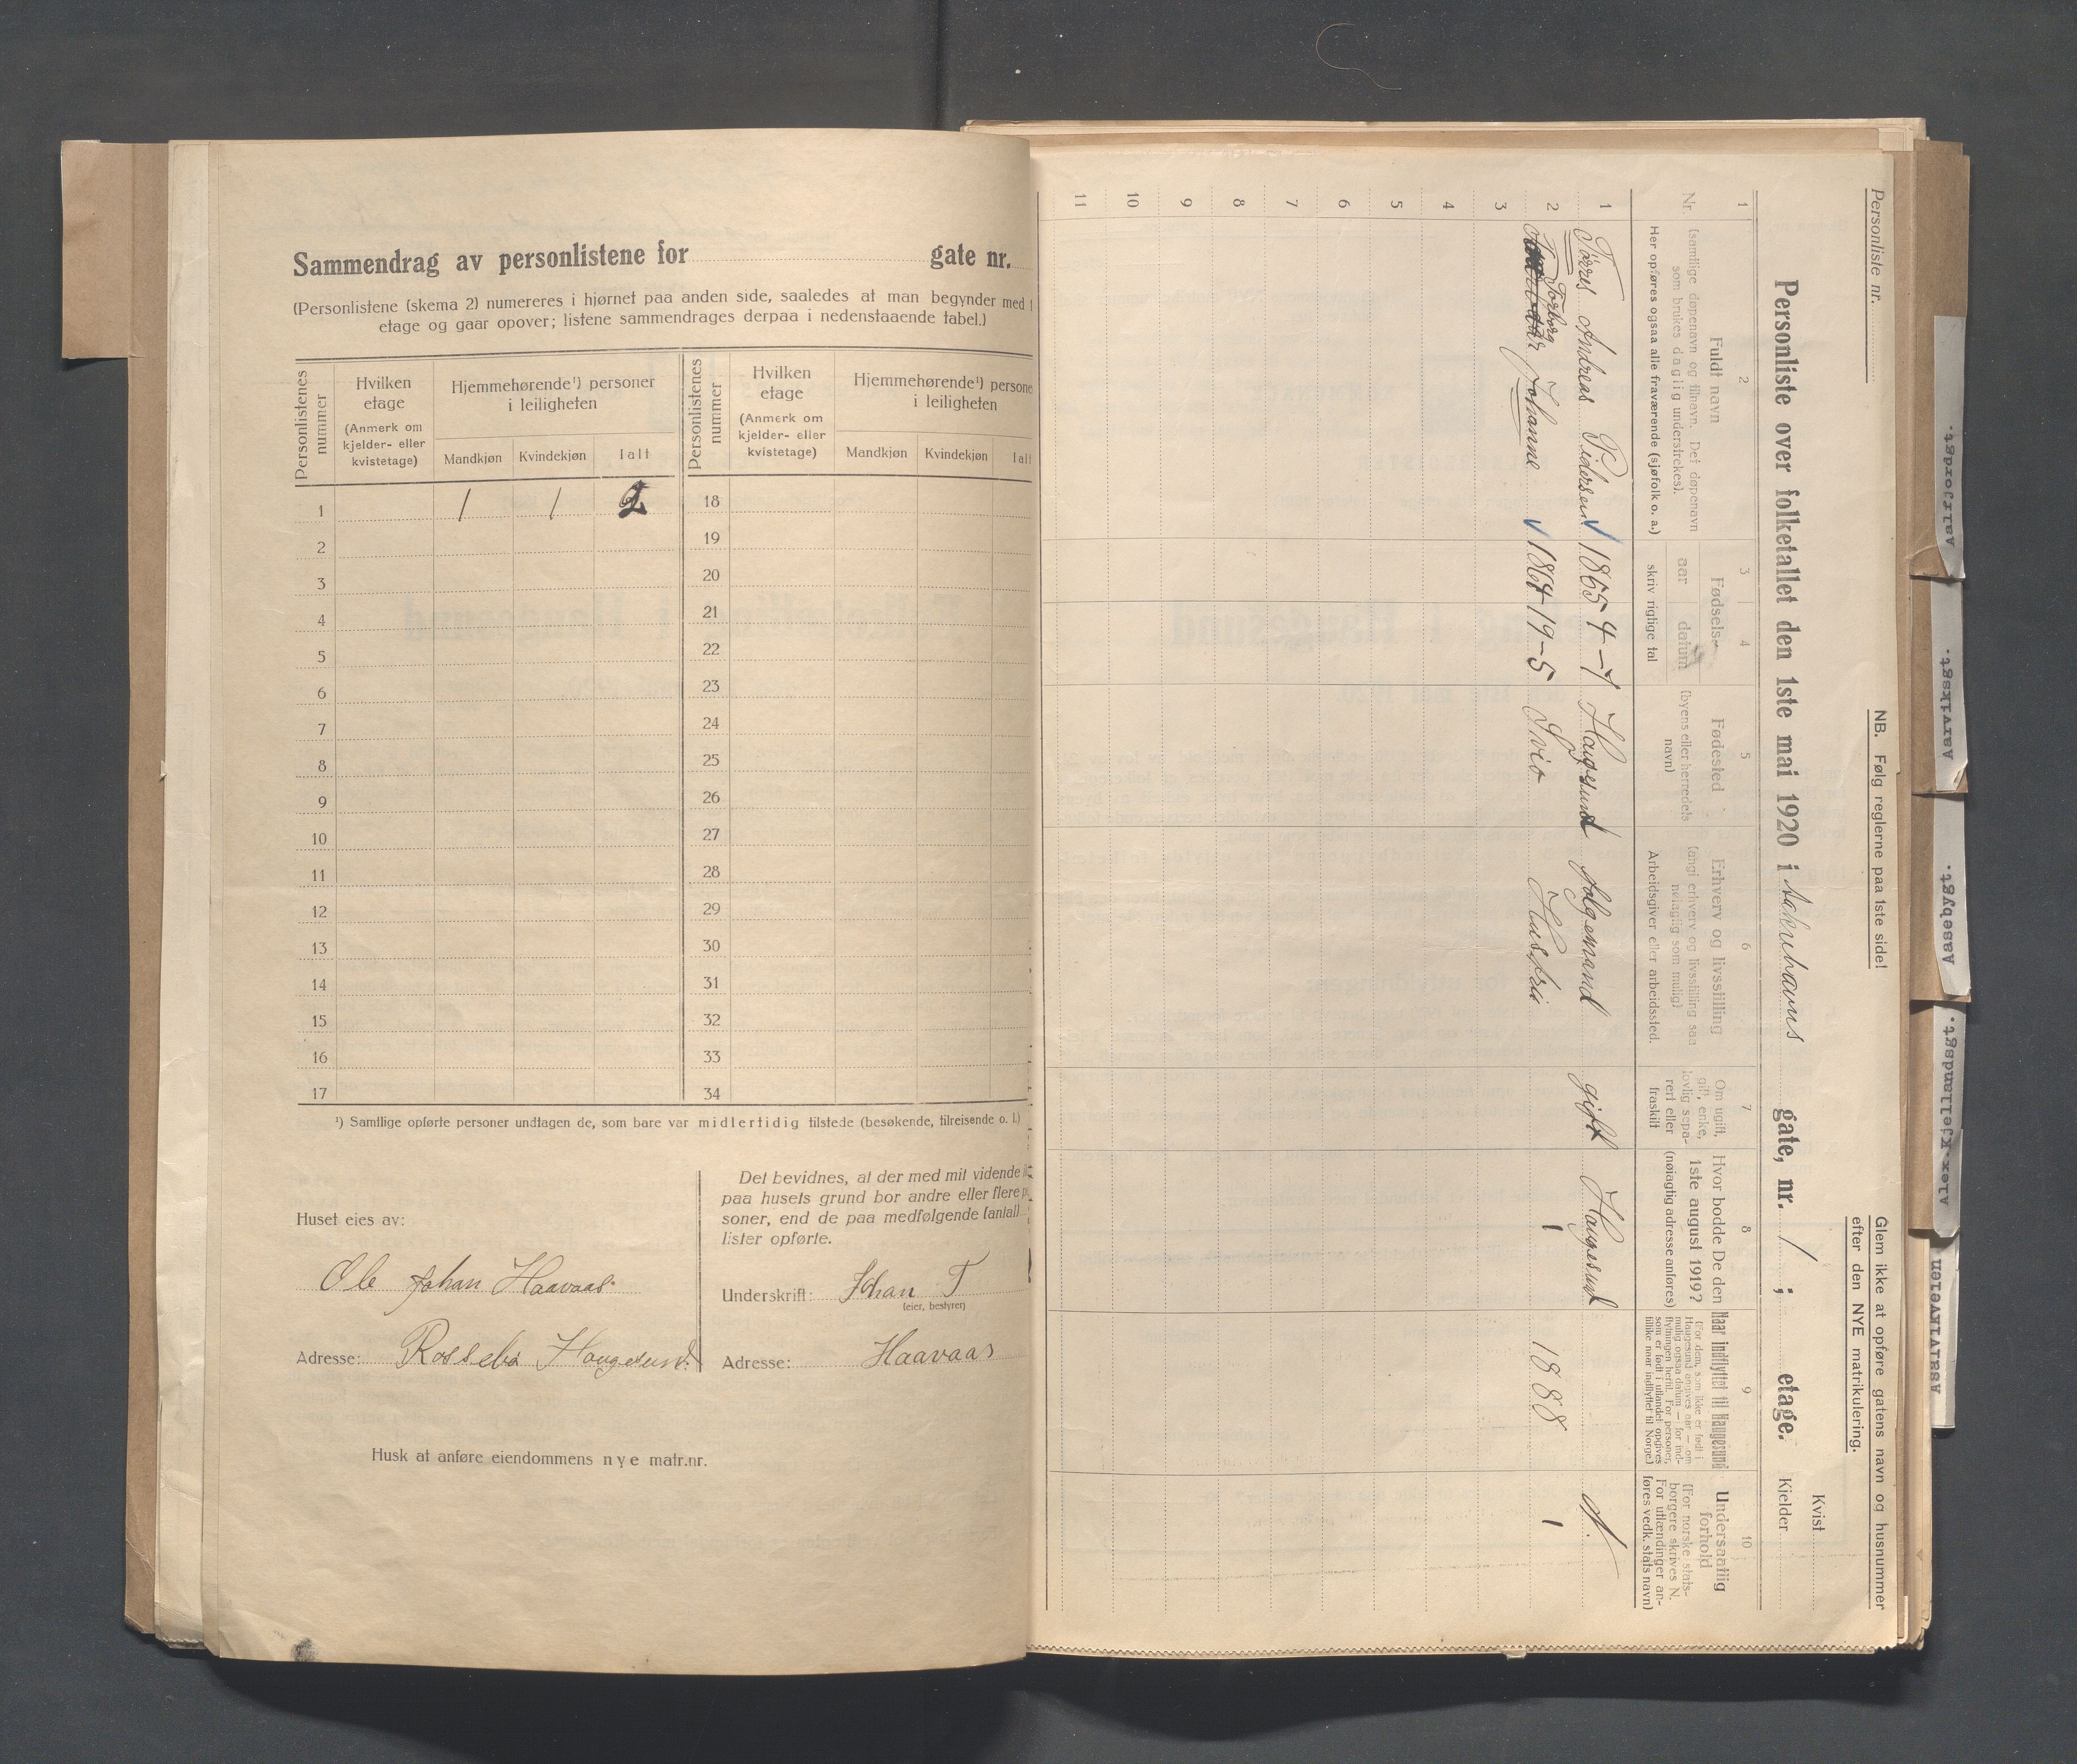 Sammendrag av personlistene for gate nr.
(Personlistene (skema 2) numereres i hjørnet paa anden side, saaledes at man begynder med
etage og gaar opover; listene sammendrages derpaa i nedenstaaende tabel.)
Personlistenes nummer
Hvilken etage
(Anmerk om kjelder- eller kvistetage)
Hjemmehørende¹) personer i leiligheten
Mandkjøn Kvindekjøn Ialt
Personlistenes nummer
Hvilken etage
(Anmerk om kjelder- eller kvistetage)
Hjemmehørende¹) persone
i leiligheten
Mandkjøn Kvindekjøn Ialt
1 1 1 2 18
2 19
3 20
4 21
5 22
6 23
7 24
8 25
9 26
10 27
11 28
12 29
13 30
14 31
15 32
16 33
17 34
¹) Samtlige opførte personer undtagen de, som bare var midlertidig tilstede (besøkende, tilreisende o. l.)
Huset eies av:
Ole Johan Haavaas.
Adresse: Rossebø Haugesund.
Det bevidnes, at der med mit vidende
paa husets grund bor andre eller flere
soner, end de paa medfølgende (antal)
lister opførte.
Underskrift: Johan T
(eier, bestyrer)
Adresse: Haavaas
Husk at anføre eiendommens nye matr.nr.
Personliste nr.
NB. Følg reglerne paa 1ste side!
Glem ikke at opføre gatens navn og husnummer
efter den NYE matrikulering.
Personliste over folketallet den 1ste mai 1920 i gate, nr. 1 ; etage.
Kvist
Kjelder
1 2 3 4 5 6 7 8 9 10
Nr.
Fuldt navn
(samtlige døpenavn og tilnavn. Det døpenavn
som brukes daglig understrekes).
Her opføres ogsaa alle fraværende (sjøfolk o. a.)
Fødsels-
aar datum
skriv rigtige tal
Fødested
(byens eller herredets
navn)
Erhverv og livsstilling
(angi erhverv og livsstilling saa
nøiagtig som mulig)
Arbeidsgiver eller arbeidssted.
Om ugift,
gift, enke,
lovlig sepa-
rert eller
fraskilt
Hvor bodde De den
1ste august 1919?
(nøiagtig adresse anføres)
Naar indflyttet til Haugesund
(For dem, som ikke er født i
Haugesund angives aar — om
mulig ogsaa datum — for ind-
flytningen hertil. For personer,
som er født i utlandet opgives
tillike naar indflyttet til Norge.)
Undersaatlig
forhold
(For norske stats-
borgere skrives N.
For utlændinger an-
føres vedk. stats navn)
1 Tørres Andreas Pedersen 1865 4-7 Haugesund følgemand gift Haugesund N.
2 Torborg Johanne 1864 19-5 Sveio Husfru 1888
3
4
5
6
7
8
9
10
11
Aalfjordgt.
Aarviksgt.
Aasebygt.
Alex.Kjellandsgt.
Asalvikveien